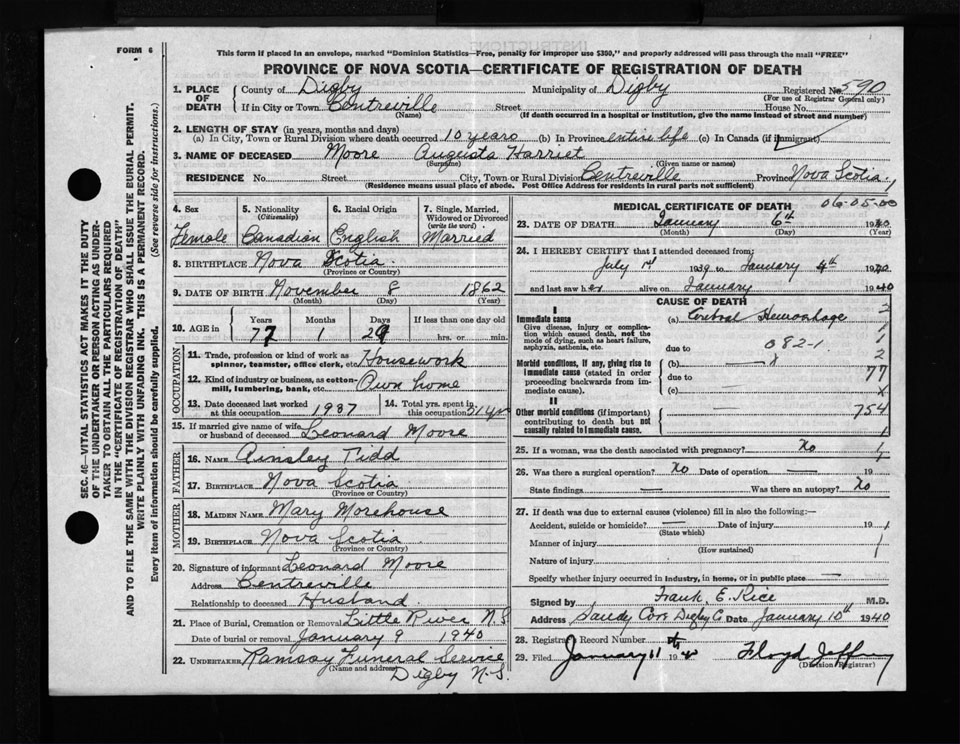 FORM 6
This form if placed in an envelope, marked "Dominion Statistics—Free, penalty for improper use $300," and properly addressed will pass through the mail "FREE"
PROVINCE OF NOVA SCOTIA—CERTIFICATE OF REGISTRATION OF DEATH
1. PLACE OF DEATH County of Digby Municipality of Digby Registered No. 590
(For use of Registrar General only)
If in City or Town Centreville Street House No.
(Name) (If death occurred in a hospital or institution, give the name instead of street and number)
2. LENGTH OF STAY (in years, months and days)
(a) In City, Town or Rural Division where death occurred 10 years (b) In Province entire life (c) In Canada (if immigrant)
3. NAME OF DECEASED Moore Augusta Harriet
(Surname) (Given name or names)
RESIDENCE No. Street City, Town or Rural Division Centreville Province Nova Scotia
(Residence means usual place of abode. Post Office Address for residents in rural parts not sufficient)
4. Sex Female
5. Nationality (Citizenship) Canadian
6. Racial Origin English
7. Single, Married, Widowed or Divorced (write the word) Married
8. BIRTHPLACE Nova Scotia
(Province or Country)
9. DATE OF BIRTH November 8 1862
(Month) (Day) (Year)
10. AGE in Years Months Days If less than one day old
77 1 29 hrs. or min.
OCCUPATION
11. Trade, profession or kind of work as spinner, teamster, office clerk, etc. Housework
12. Kind of industry or business, as cotton-mill, lumbering, bank, etc. Own home
13. Date deceased last worked at this occupation 1937
14. Total yrs. spent in this occupation 51 yrs
15. If married give name of wife or husband of deceased Leonard Moore
FATHER
16. NAME Ainsley Tidd
17. BIRTHPLACE Nova Scotia
(Province or Country)
MOTHER
18. MAIDEN NAME Mary Morehouse
19. BIRTHPLACE Nova Scotia
(Province or Country)
20. Signature of informant Leonard Moore
Address Centreville
Relationship to deceased Husband
21. Place of Burial, Cremation or Removal Little River N.S
Date of burial or removal January 9 1940
22. UNDERTAKER Ramsay Funeral Service
(Name and address)
Digby N.S.
MEDICAL CERTIFICATE OF DEATH 06-05-00
23. DATE OF DEATH January 6th 1940
(Month) (Day) (Year)
24. I HEREBY CERTIFY that I attended deceased from:
July 1st 1939 to January 4th 1940
and last saw her alive on January 1940
CAUSE OF DEATH
I
Immediate cause (a) Cerebral Hemorrhage 2
Give disease, injury or complication which caused death, not the mode of dying, such as heart failure, asphyxia, asthenia, etc. 1
due to 082-1 1
Morbid conditions, if any, giving rise to immediate cause (stated in order proceeding backwards from immediate cause). (b) 8 2
due to 77
(c) X
II
Other morbid conditions (if important) contributing to death but not causally related to immediate cause. — 754
1
25. If a woman, was the death associated with pregnancy? No
26. Was there a surgical operation? No Date of operation — 19
State findings — Was there an autopsy? No
27. If death was due to external causes (violence) fill in also the following:—
Accident, suicide or homicide? — Date of injury 19
(State which)
Manner of injury
(How sustained)
Nature of injury
Specify whether injury occurred in industry, in home, or in public place —
Signed by Frank E. Rice M.D.
Address Sandy Cove Digby Co Date January 10th 1940
28. Registrar's Record Number
29. Filed January 11 19 40 Floyd
(Division Registrar)
SEC. 46—VITAL STATISTICS ACT MAKES IT THE DUTY
OF THE UNDERTAKER OR PERSON ACTING AS UNDER-
TAKER TO OBTAIN ALL THE PARTICULARS REQUIRED
IN THE "CERTIFICATE OF REGISTRATION OF DEATH"
AND TO FILE THE SAME WITH THE DIVISION REGISTRAR WHO SHALL ISSUE THE BURIAL PERMIT.
WRITE PLAINLY WITH UNFADING INK. THIS IS A PERMANENT RECORD.
Every item of information should be carefully supplied. (See reverse side for instructions.)